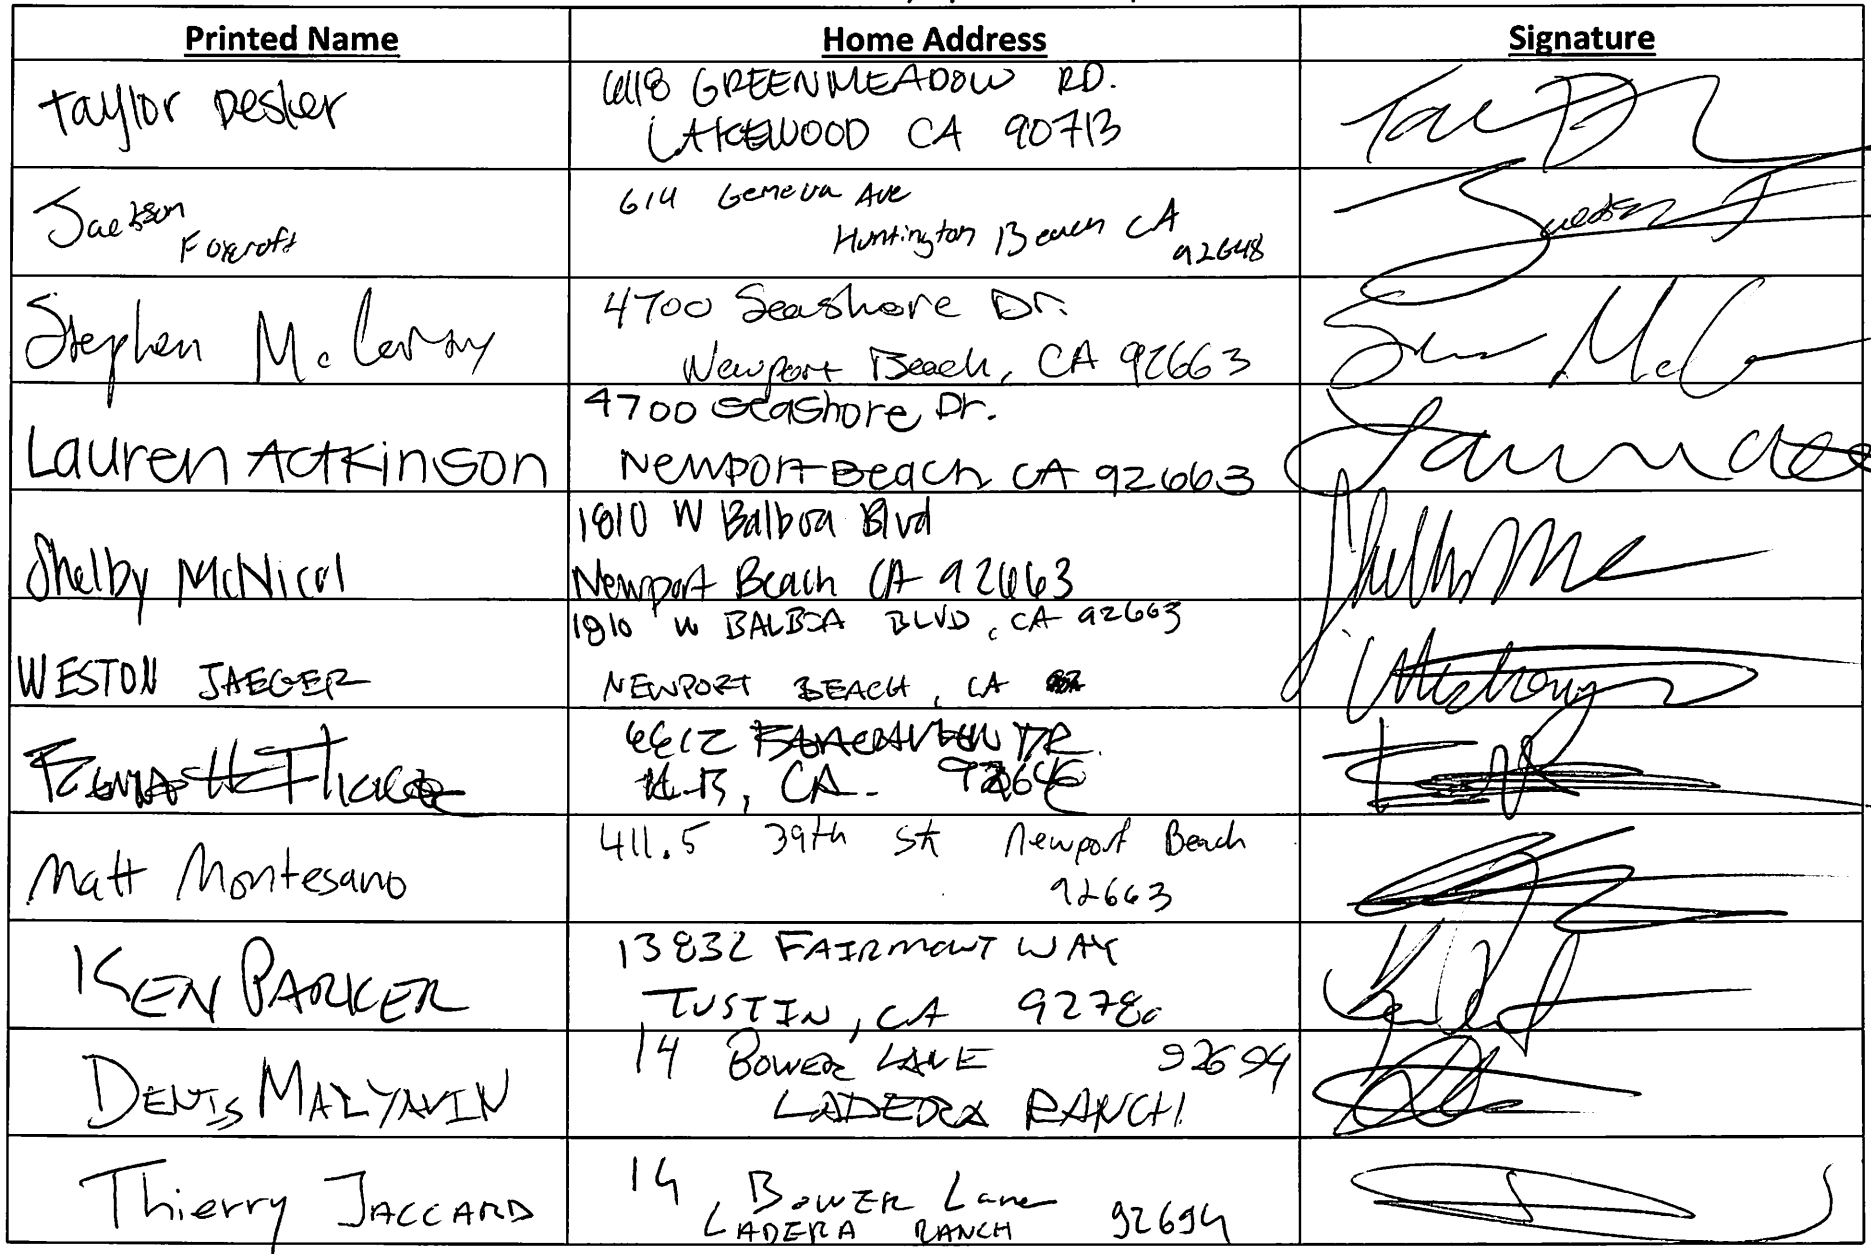 Printed Name
Home Address
Signature
Taylor Desker
6118 GREENMEADOW RD.
LAKEWOOD CA 90713
Jackson
Foxcroft
614 Geneva Ave
Huntington Beach CA
92648
Stephen
4700 Seashore Dr.
Newport Beach, CA 92663
Lauren Actkinson
4700 Seashore Dr.
Newport Beach CA 92663
Shelby McNicol
1810 W Balboa Blvd
Newport Beach CA 92663
WESTON JAEGER
1810 W BALBOA BLVD, CA 92663
NEWPORT BEACH, CA
6612 DR.
H.B, CA. 92646
Matt Montesano
411.5 39th St Newport Beach
92663
KEN PARKER
13832 FAIRMONT WAY
TUSTIN, CA 92780
DENIS MALYAVIN
14 BOWER LANE 92694
LADERA RANCH
Thierry JACCARD
14 BOWER Lane
LADERA RANCH 92694